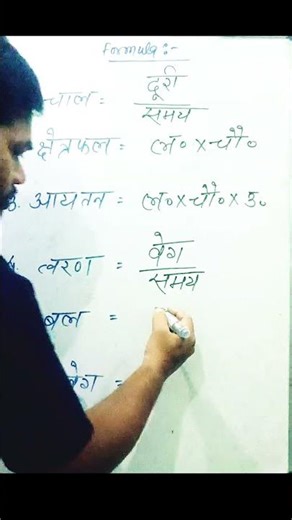 Formula :-
चाल = दूरी / समय
क्षेत्रफल = ल० x चौ०
3. आयतन = ल० x चौ० x उ०
4. त्वरण = वेग / समय
बल =
वेग =